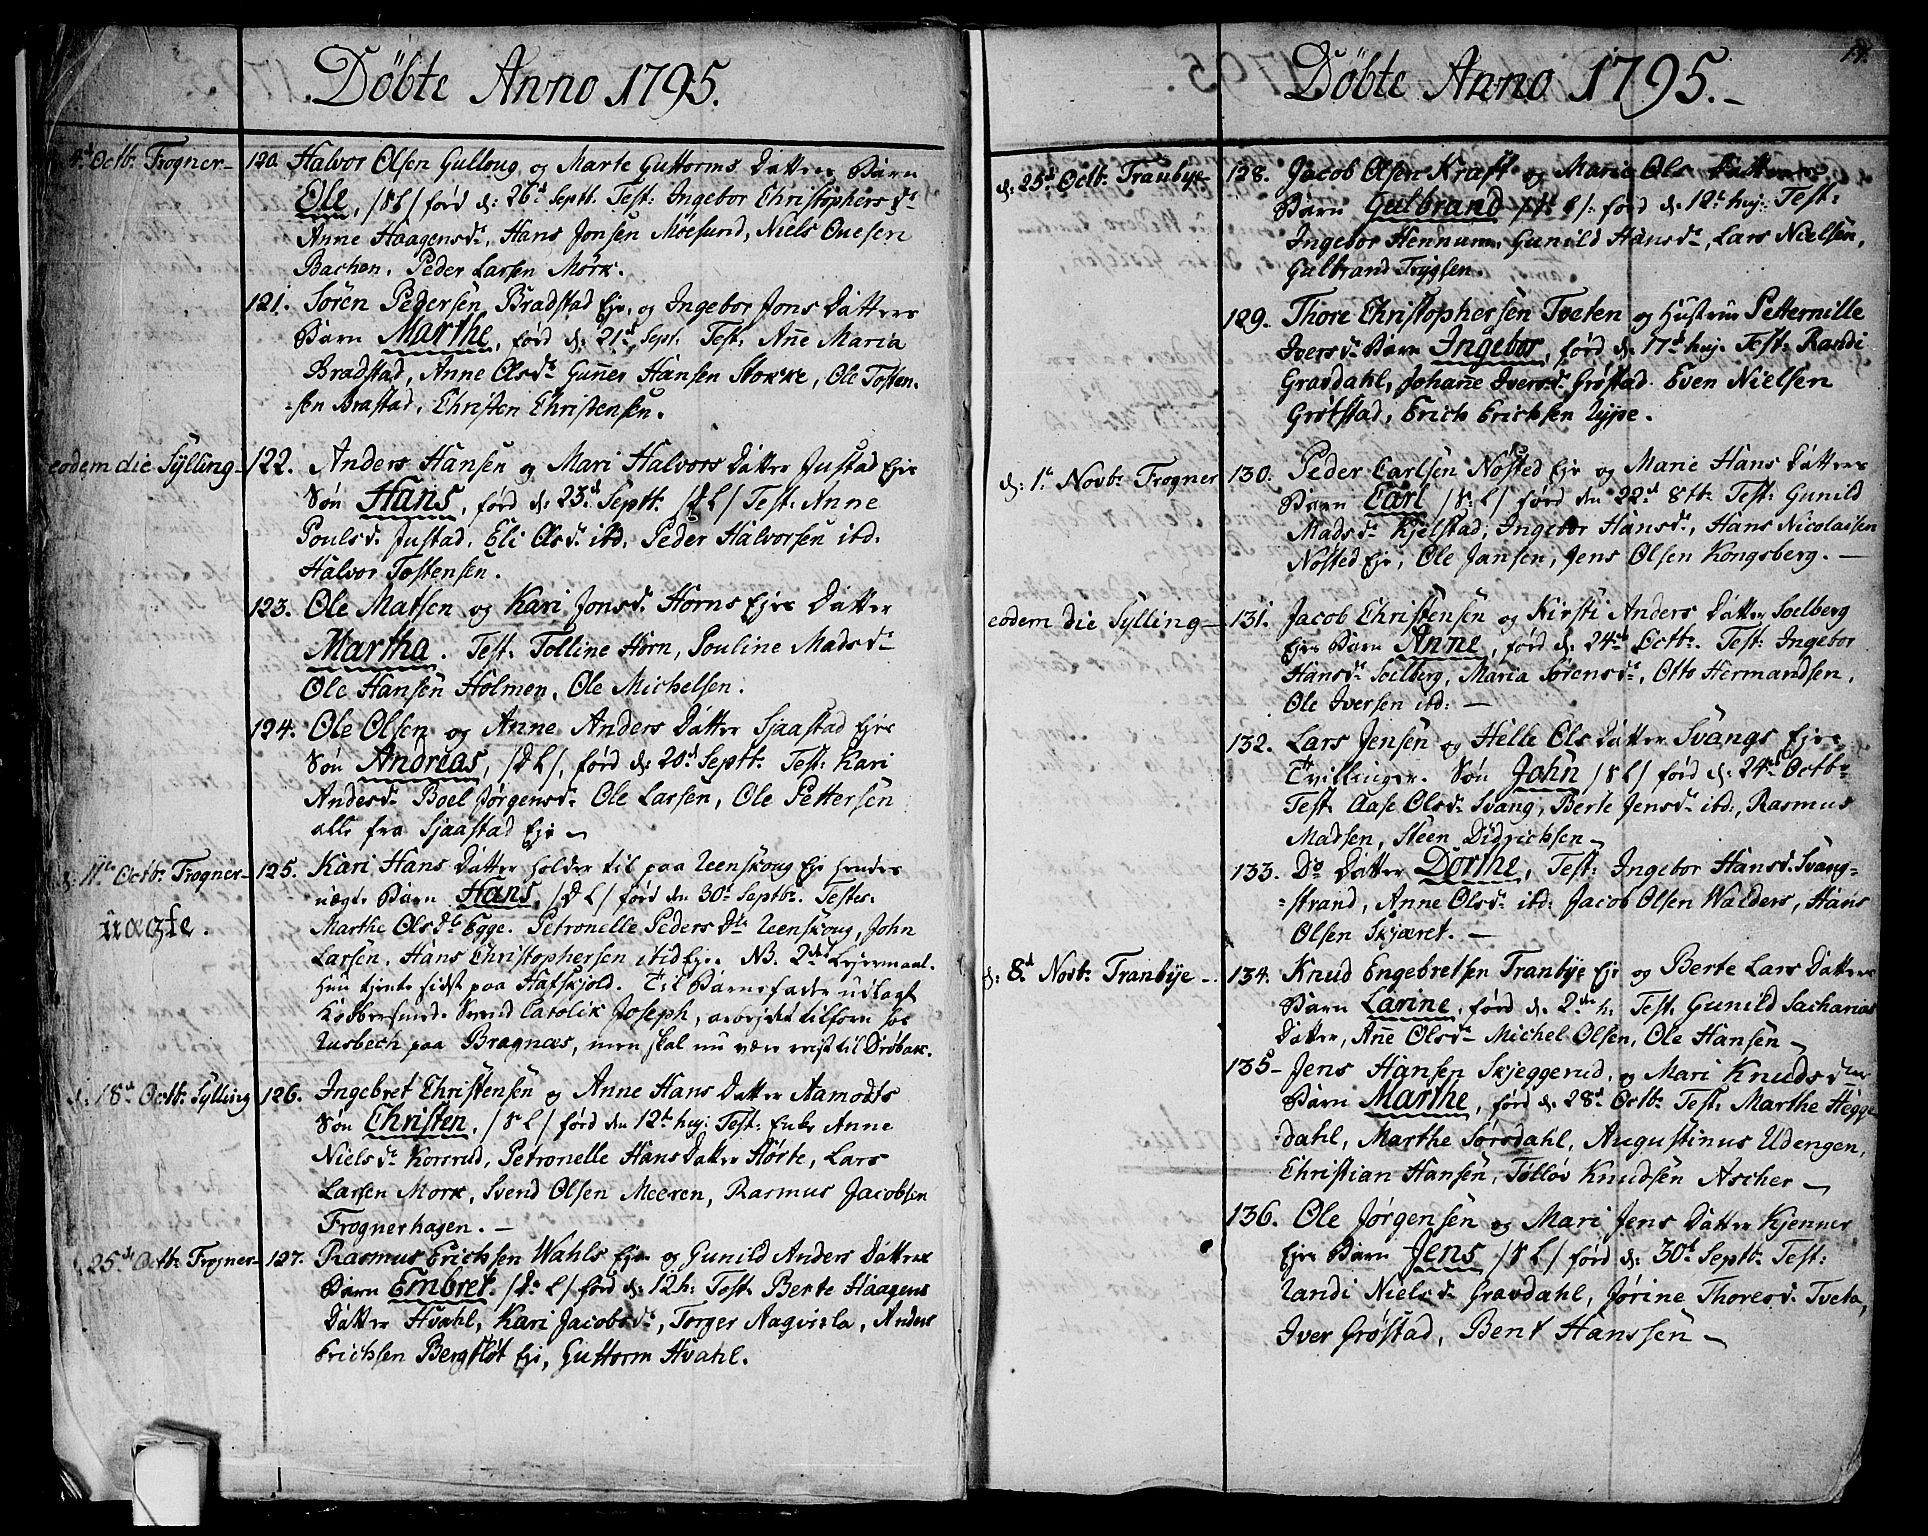 Döbte Anno 1795.
4d Octb: Frogner— 120. Halvor Olsen Gulloug og Marte Guttorms Datters Barn
Ole, /: L / förd d: 26d Septt. Test: Ingebor Christophersdr
Anne Haagensdr, Hans Jonsen Moesund, Niels Ovesen
Bachen, Peder Larsen Mörk.
121. Sören Pedersen Bradstad Eje, og Ingebor Jons Datters
Barn Marthe, förd d: 21d Sept. Test: Añe Maria
Bradstad, Anne Olsdr Guñer Hansen Stokke, Ole Tosten-
-sen Brastad, Christen Christensen.
eodem die Sylling— 122. Anders Hansen og Mari Halvors Datter Justad Ejes
Sön Hans, förd d: 23d Septb: / L / Test: Anne
Poulsdr Justad, Eli Olsdr ibd: Peder Halvorsen ibd.
Halvor Tostensen.
123. Ole Matsen og Kari Jonsdr Horns Ejes Datter
Martha. Test: Tolline Horn, Pouline Madsdr
Ole Hansen Holmen, Ole Michelsen.
124. Ole Olsen og Anne Anders Datter Sjaastad Ejes
Sön Andreas, / L /, förd d: 20d Septb: Test: Kari
Andersdr Boel Jörgensdr Ole Larsen, Ole Pettersen
alle fra Sjaastad Eje —
d: 11te Octb: Frogner— 125. Kari Hans Datter holder til paa Ueenskoug Eje hendes
uægte. uægte Barn Hans, / L / förd den 30d Septbr. Testes:
Marthe Olsdr Egge. Petronelle Peders Dtr Ueenskoug, John
Larsen, Hans Christophersen ibid Eje. NB. 2det Lejermaal.
Hun tjente sidst paa Hafskjold. Til Barnefader udlagt
Svend Catolik Joseph, arbejdet tilforn hos
paa Bragnæs, men skal nu være rejst til Dröbak.
d: 18d Octb: Sylling 126. Ingebret Christensen og Anne Hans Datter Aamodts
Sön Christen, / L / förd den 12te huj: Test: Enke Anne
Nielsdr Korsrud, Petronelle Hans Datter Hörte, Lars
Larsen Mork, Svend Olsen Meeren, Rasmus Jacobsen
Frognerhagen. —
25d Octb: Frogner— 127. Rasmus Erichsen Wahls Eje og Gunild Anders Datters
Barn Embret. / L / förd d: 12 h: Test: Berte Haagens
Datter Hvahl, Kari Jacobsdr, Torger Nagvisla, Anders
Erichsen Bergflöt Eje, Guttorm Hvahl.
14.
Döbte Anno 1795.—
d: 25d Octb: Tranbye 128. Jacob Olsen Kraft og Marie Ols Datters
Barn Gulbrand / L / förd d: 12te huj: Test:
Ingebor Hennum, Gunild Hansdr, Lars Nielsen,
Gulbrand Trygsen.
129. Thore Christophersen Tveten og Hustrue Petternille
Iversdr Barn Ingebor, förd d: 17d huj. Test: Randi
Gravdahl, Johañe Iversdr Gröstad. Even Nielsen
Grötstad, Erich Erichsen Uype.
d: 1te Novb: Frogner 130. Peder Carlsen Nösted Eje og Marie Hans Datters
Barn Carl / L / förd den 22d 8tb: Test: Gunild
Madsdr Kjelstad, Ingebor Hansdr, Hans Nicolaisen
Nösted Eje, Ole Jansen, Jens Olsen Kongsberg. —
eodem die Sylling— 131. Jacob Christensen og Kirsti Anders Datter Soelberg
Ejes Barn Anne, förd d: 24d Octb: Test: Ingebor
Hansdr Soelberg, Maria Sörensdr, Otto Hermandsen,
Ole Iversen ibd: —
132. Lars Jensen og Helle Ols Datter Svangs Ejes
Tvillinger. Sön John / L / förd d: 24d Octbr
Test: Aase Olsdr Svang, Berte Jensdr ibd:, Rasmus
Madsen, Steen Didrichsen—
133. Do Datter Dorthe, Test: Ingebor Hansdr Svang-
-strand, Anne Olsdr ibd: Jacob Olsen Walders, Hans
Olsen Skjæret. —
d: 8d Novb: Tranbye — 134. Knud Engebretsen Tranbye Eje og Berte Lars Datters
Barn Larine, förd d: 2den h: Test: Gunild Sacharias
Datter, Añe Olsdr Michel Olsen, Ole Hansen —
135— Jens Hansen Skjeggerud, og Mari Knudsd
Barn Marthe, förd d: 28d Octb: Test: Marthe Hegge
dahl, Marthe Sörsdahl, Augustinus Udengen,
Christian Hansen, Tollov Knudsen Ascher —
136. Ole Jörgensen og Mari Jens Datter Kjenner
Ejes Barn Jens / L / förd d: 30d Septb: Test:
Randi Nielsdr Gravdahl, Jörine Thoresdr Tveta,
Iver Gröstad, Bent Hanssen —